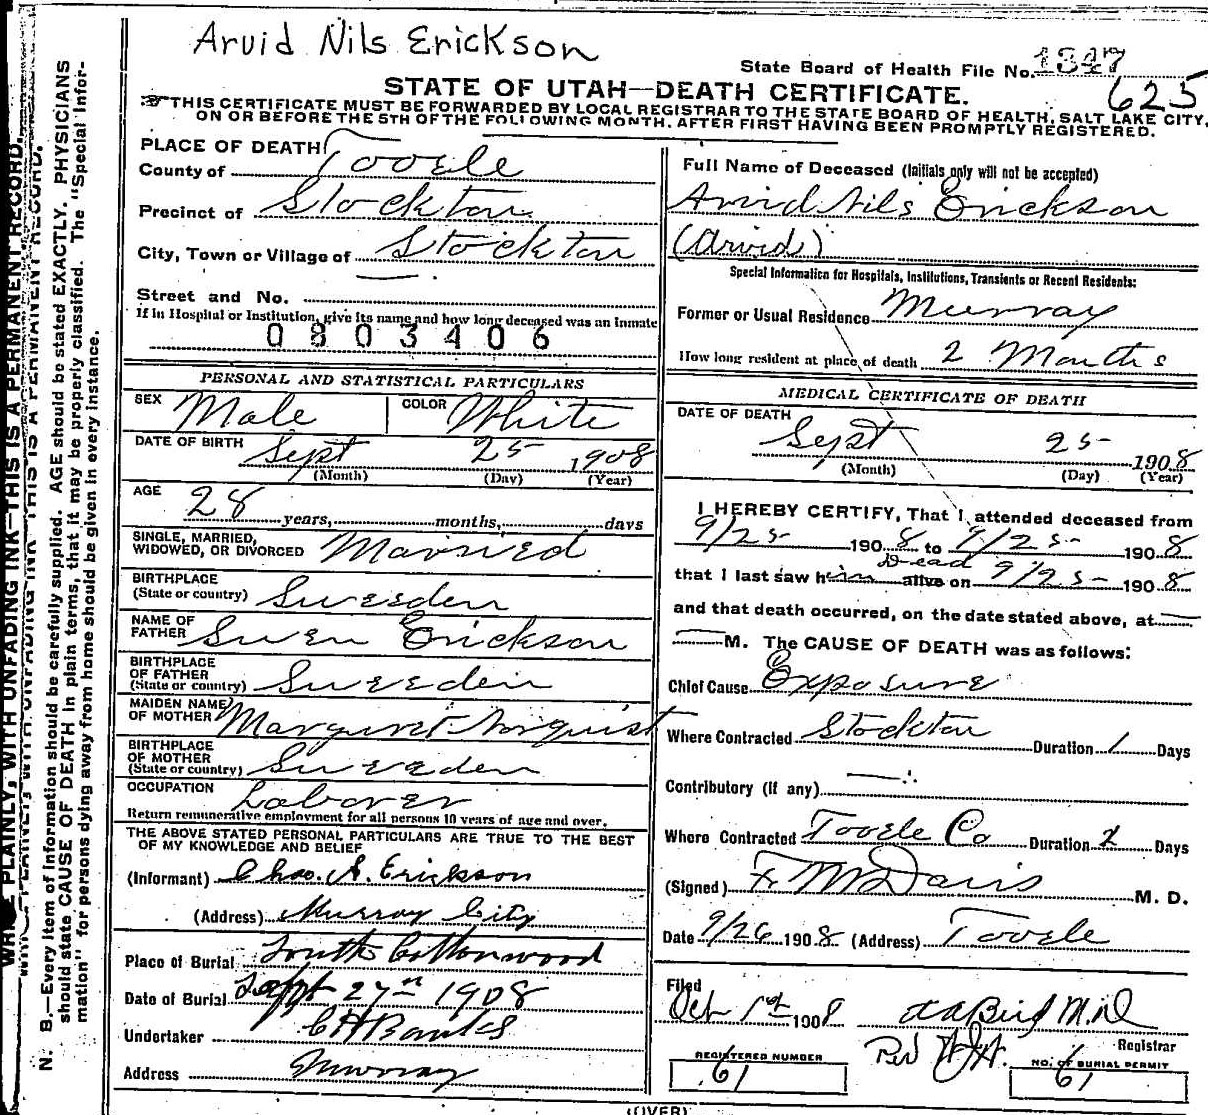 Arvid Nils Erickson
State Board of Health File No. 1347
625
STATE OF UTAH—DEATH CERTIFICATE.
THIS CERTIFICATE MUST BE FORWARDED BY LOCAL REGISTRAR TO THE STATE BOARD OF HEALTH, SALT LAKE CITY,
ON OR BEFORE THE 5TH OF THE FOLLOWING MONTH, AFTER FIRST HAVING BEEN PROMPTLY REGISTERED.
PLACE OF DEATH
County of Tooele
Precinct of Stockton
City, Town or Village of Stockton
Street and No.
If in Hospital or Institution, give its name and how long deceased was an inmate
0803406
PERSONAL AND STATISTICAL PARTICULARS
SEX Male COLOR White
DATE OF BIRTH Sept 25 1908
(Month) (Day) (Year)
AGE 28 years, months, days
SINGLE, MARRIED,
WIDOWED, OR DIVORCED Married
BIRTHPLACE
(State or country) Sweeden
NAME OF
FATHER Swen Erickson
BIRTHPLACE
OF FATHER
(State or country) Sweeden
MAIDEN NAME
OF MOTHER Marguret Norquist
BIRTHPLACE
OF MOTHER
(State or country) Sweeden
OCCUPATION Laborer
Return remunerative employment for all persons 10 years of age and over.
THE ABOVE STATED PERSONAL PARTICULARS ARE TRUE TO THE BEST
OF MY KNOWLEDGE AND BELIEF
(Informant) Chas. A. Erickson
(Address) Murray City
Place of Burial South Cottonwood
Date of Burial Sept 27th 1908
Undertaker C H Banks
Address Murray
Full Name of Deceased (Initials only will not be accepted)
Arvid Nils Erickson
(Arvid)
Special Information for Hospitals, Institutions, Transients or Recent Residents:
Former or Usual Residence Murray
How long resident at place of death 2 Months
MEDICAL CERTIFICATE OF DEATH
DATE OF DEATH
Sept 25 1908
(Month) (Day) (Year)
I HEREBY CERTIFY, That I attended deceased from
9/25 1908 to 9/25 1908
Dead
that I last saw him alive on 9/25 1908
and that death occurred, on the date stated above, at
M. The CAUSE OF DEATH was as follows:
Chief Cause Exposure
Where Contracted Stockton Duration 1 Days
Contributory (if any)
Where Contracted Tooele Co Duration 2 Days
(Signed) F M Davis M. D.
Date 9/26 1908 (Address) Tooele
Filed
Oct 1st 1908 M.D.
Registrar
REGISTERED NUMBER
61
NO. OF BURIAL PERMIT
61
(OVER)
N. B.—Every item of information should be carefully supplied. AGE should be stated EXACTLY. PHYSICIANS
should state CAUSE OF DEATH in plain terms, that it may be properly classified. The "Special Infor-
mation" for persons dying away from home should be given in every instance.
WRITE PLAINLY, WITH UNFADING INK—THIS IS A PERMANENT RECORD.